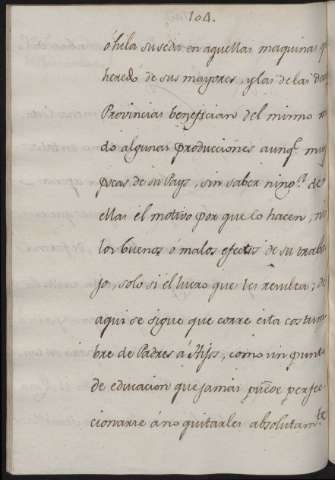 104.
ó hila su seda en aquellas maquinas q.
heredó de sus mayores, y las de las
Provincias benefician del mismo
do algunas producciones aunq.e muy
pocas de su Pays, sin saber ning.a de
ellas el motivo por que lo hacen, ni
los buenos ó malos efectos de su traba
jo, solo si el lucro que les resulta; de
aqui se sigue que corre esta costum
bre de Padres á Hijos, como un punto
de educacion que jamas puede perfec
cionarse á no quitarles absolutam.te